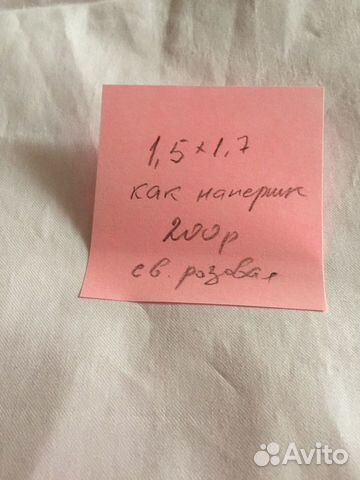 1,5×1,7
как наперник
200р
св. розовая
Avito